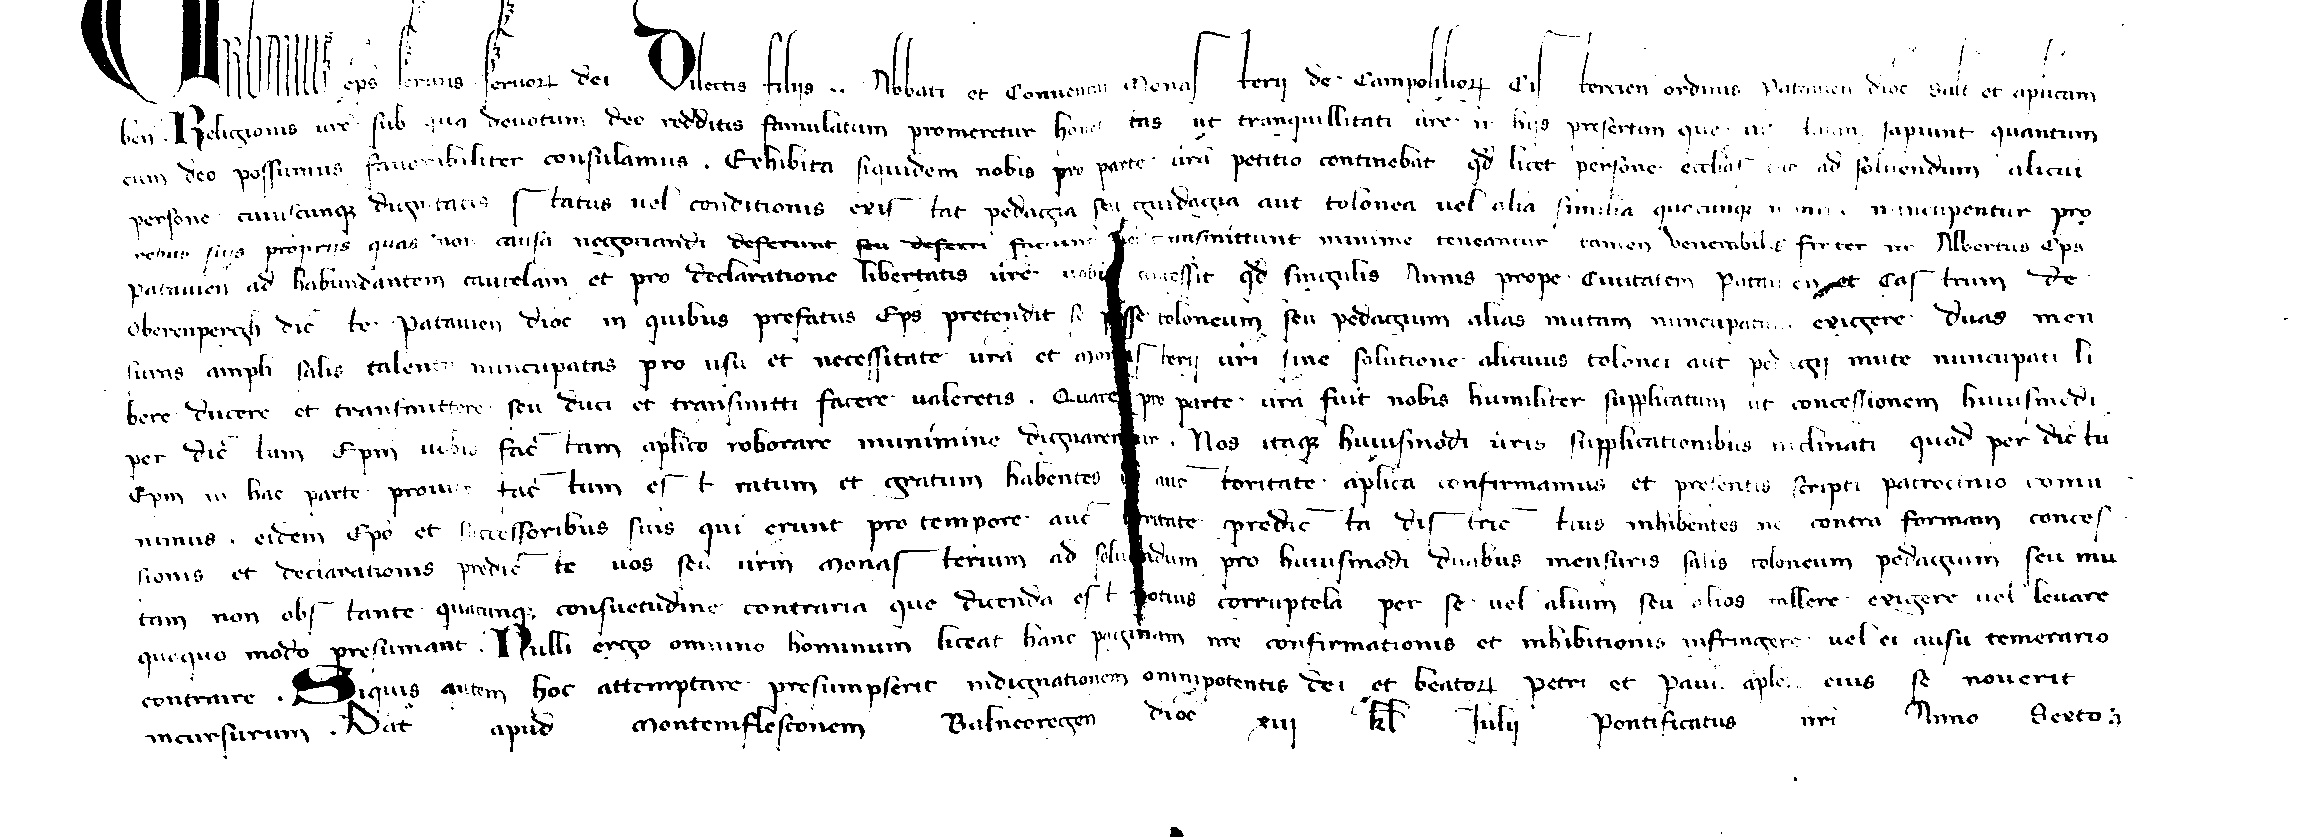 Urbanus eps servus servorꝝ dei Dilectis filiis .. Abbati et Conventui Monasterii de Campoliliorꝝ Cistercien ordinis Patavien dioc salt et aplicam
ben . Religionis vre sub qua devotum deo redditis famulatum promeretur honestas ut tranquillitati vre in hiis presertim que sapiunt quantum
cum deo possumus favorabiliter consulamus . Exhibita siquidem nobis pro parte vra petitio continebat qd licet persone ecclias ad solvendum alicui
persone cuiuscunqꝫ dignitatis status vel conditionis existat pedagia seu guidagia aut tolonea vel alia similia quocunqꝫ nuncupentur pro
rebus suis propriis quas non causa negociandi deferunt seu deferri faciunt transmittunt minime teneantur tamen venerabilis frater nr Albertus Eps
Patavien ad habundantem cautelam et pro declaratione libertatis vre vobis concessit qd singulis Annis prope Civitatem Patavien et Castrum de
Oberenpergh dicte Patavien dioc in quibus prefatus Eps pretendit se posse toloneum seu pedagium alias mutam nuncupatum exigere duas men
suras ampli salis talenta nuncupatas pro usu et necessitate vra et Monasterii vri sine solutione alicuius tolonei aut pedagii mute nuncupati li
bere ducere et transmittere seu duci et transmitti facere valeretis . Quare pro parte vra fuit nobis humiliter supplicatum ut concessionem huiusmodi
per dictum Epm vobis factam aplico roborare munimine dignaremur . Nos itaqꝫ huiusmodi vris supplicationibus inclinati quod per dictu
Epm in hac parte provide factum est ratum et gratum habentes auctoritate aplica confirmamus et presentis scripti patrocinio comu
nimus . eidem Epo et successoribus suis qui erunt pro tempore auctoritate predicta districtius inhibentes ne contra formam conces
sionis et declarationis predicte vos seu vrm Monasterium ad solvendum pro huiusmodi duabus mensuris salis toloneum pedagium seu mu
tam non obstante quacunqꝫ consuetudine contraria que dicenda est potius corruptela per se vel alium seu alios tollere exigere vel levare
quoquo modo presumant . Nulli ergo omnino hominum liceat hanc paginam nre confirmationis et inhibitionis infringere vel ei ausu temerario
contraire . Siquis autem hoc attemptare presumpserit indignationem omnipotentis dei et beatorꝝ Petri et Pauli aplorꝝ eius se noverit
incursurum . Dat apud Montemflasconem Balneoregen dioc xiii kl Julii Pontificatus nri Anno Sexto